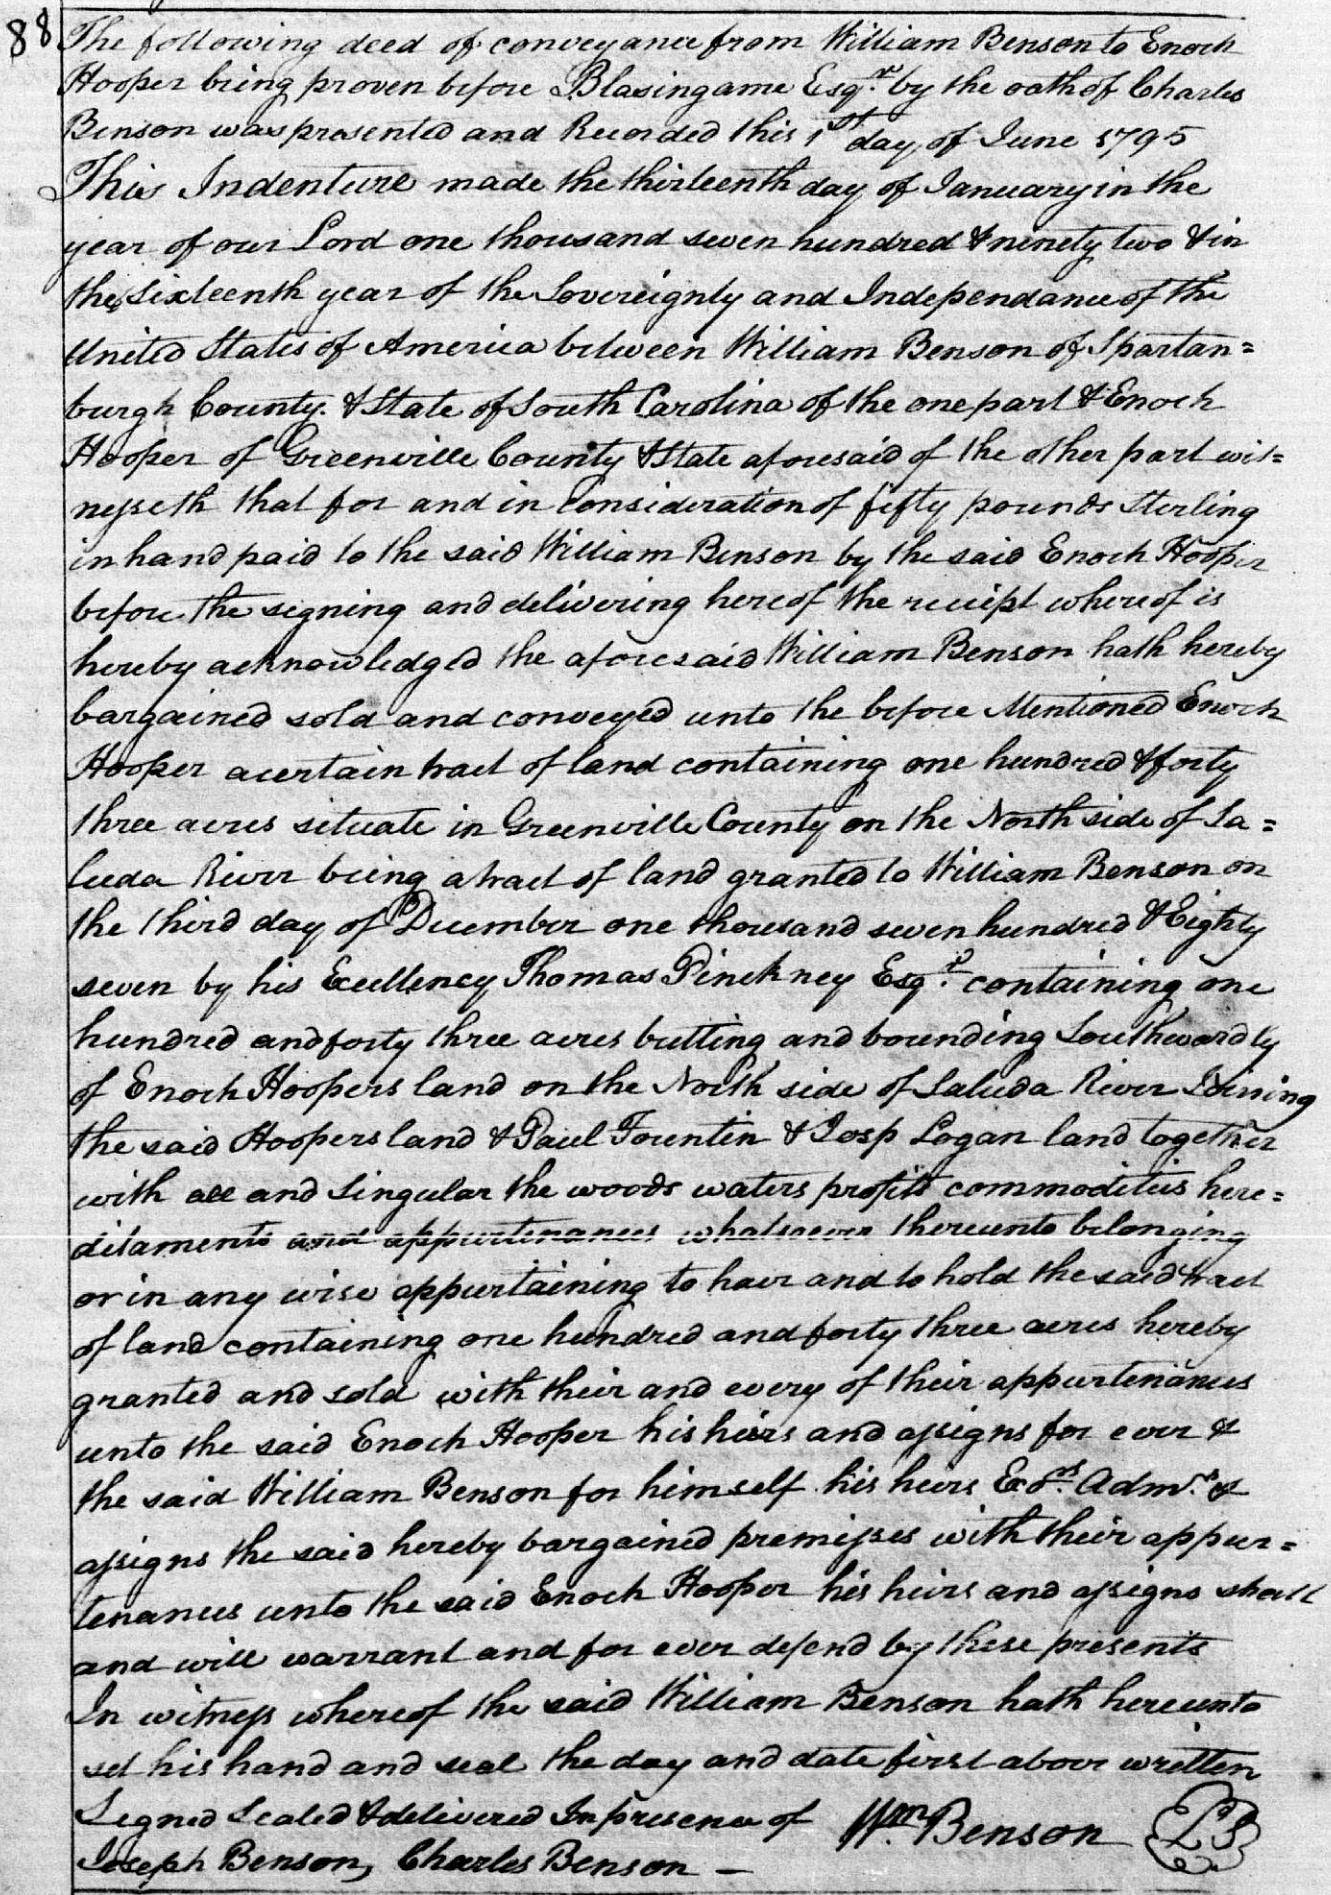 88
The following deed of conveyance from William Benson to Enoch
Hooper being proven before Blasingame Esqr. by the oath of Charles
Benson was presented and Recorded this 1st day of June 1795
This Indenture made the thirteenth day of January in the
year of our Lord one thousand seven hundred & ninety two & in
the Sixteenth year of the Sovereignty and Independance of the
United States of America between William Benson of Spartan=
burgh County. & State of South Carolina of the one part & Enoch
Hooper of Greenville County & State aforesaid of the other part wit=
nesseth that for and in Consideration of fifty pounds Sterling
in hand paid to the said William Benson by the said Enoch Hooper
before the signing and delivering hereof the receipt whereof is
hereby acknowledged the aforesaid William Benson hath hereby
bargained sold and conveyed unto the before Mentioned Enoch
Hooper a certain tract of land containing one hundred & forty
three acres situate in Greenville County on the North side of Sa=
luda River being a tract of land granted to William Benson on
the third day of December one thousand seven hundred & Eighty
seven by his Excellency Thomas Pinckney Esqr. containing one
hundred and forty three acres butting and bounding Southwardly
of Enoch Hoopers land on the North side of Saluda River Joining
the said Hoopers land & Paul Fountin & Josp Logan land together
with all and Singular the woods waters profits commodities here=
ditaments and appurtenances whatsoever thereunto belonging
or in any wise appurtaining to have and to hold the said tract
of land containing one hundred and forty three acres hereby
granted and sold with their and every of their appurtenances
unto the said Enoch Hooper his heirs and assigns for ever &
the said William Benson for himself his heirs Exors. Admrs. &
assigns the said hereby bargained premisses with their appur=
tenances unto the said Enoch Hooper his heirs and assigns shall
and will warrant and for ever defend by these presents
In witness whereof the said William Benson hath hereunto
set his hand and seal the day and date first above written
Signed Sealed & delivered In presence of Wm. Benson LS
Joseph Benson, Charles Benson —